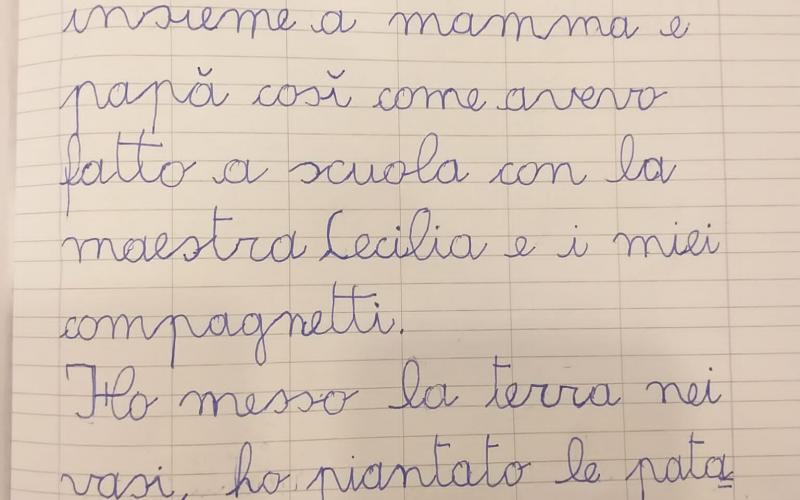 insieme a mamma e
papă cosĭ come avevo
fatto a scuola con la
maestra Cecilia e i miei
compagnetti.
Ho messo la terra nei
vasi, ho piantato le pata